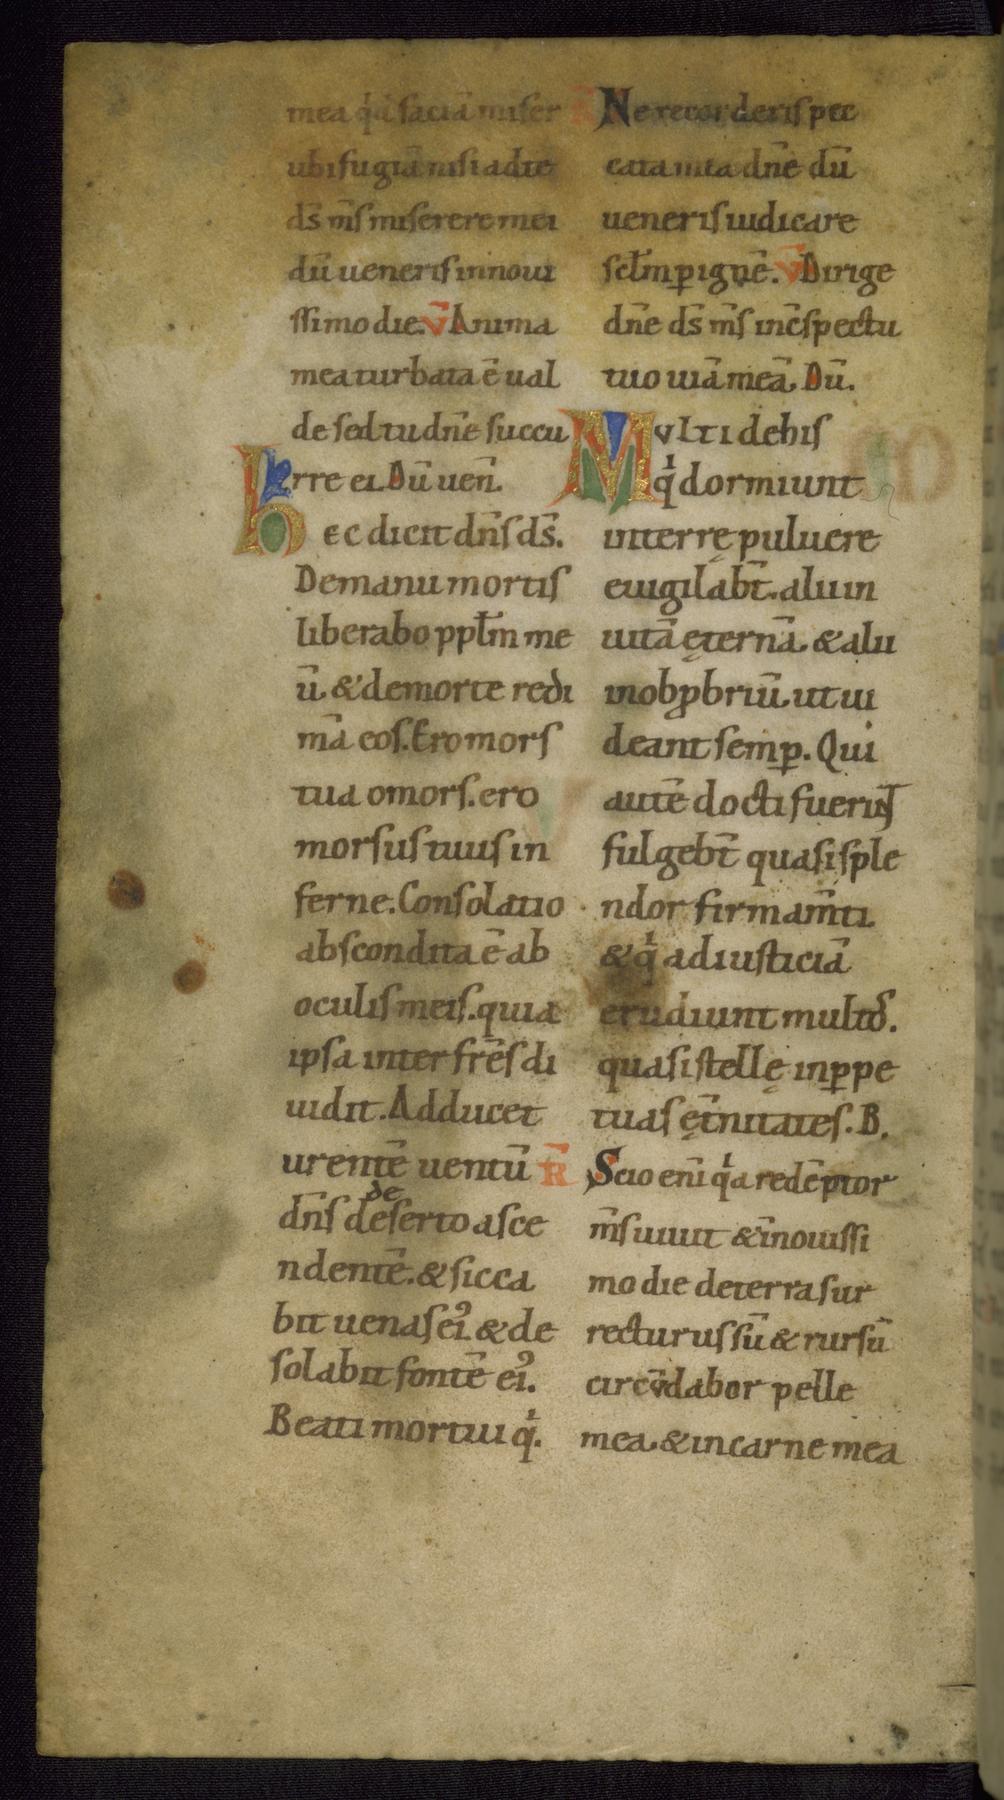 mea q̇d faciā miser
ubi fugiā nisi ad te
d̄s m̄s miserere mei
dū ueneris in noui
ssimo die. V̄ Anima
mea turbata ē ual
de sed tu dn̄e succu
rre ei. Dū uen̄.
Hec dicit dn̄s d̄s.
De manu mortis
liberabo pplm̄ me
ū. & de morte redi
mā eos. Ero mors
tua o mors. ero
morsus tuus in
ferne. Consolatio
abscondita ē ab
oculis meis. quia
ipsa inter frēs di
uidit. Adducet
urentē uentū
dn̄s de deserto asce
ndentē. & sicca
bit uenas ei᾽. & de
solabit fontē ei᾽.
Beati mortui q̇.
R̄ Ne recorderis pec
cata mea dn̄e dū
ueneris iudicare
sclm̄ p̱ ignē. V̄ Dirige
dn̄e d̄s m̄s in c̄spectu
tuo uiā meā. Dū.
Multi de his
q̇ dormiunt
in terrę puluere
euigilabt̄. alii in
uitā ęternā. & alii
in obꝓbriū. ut ui
deant semꝑ. Qui
autē docti fuerint
fulgebt̄ quasi sple
ndor firmam̄ti.
& q̇ ad iusticiā
erudiunt multos.
quasi stellę in ꝑpe
tuas ęt̄nitates. B.
R̄ Scio en̄i q̇a redēptor
m̄s uiuit & ī nouissi
mo die de terra sur
recturus sū & rursū
circūdabor pelle
mea. & in carne mea